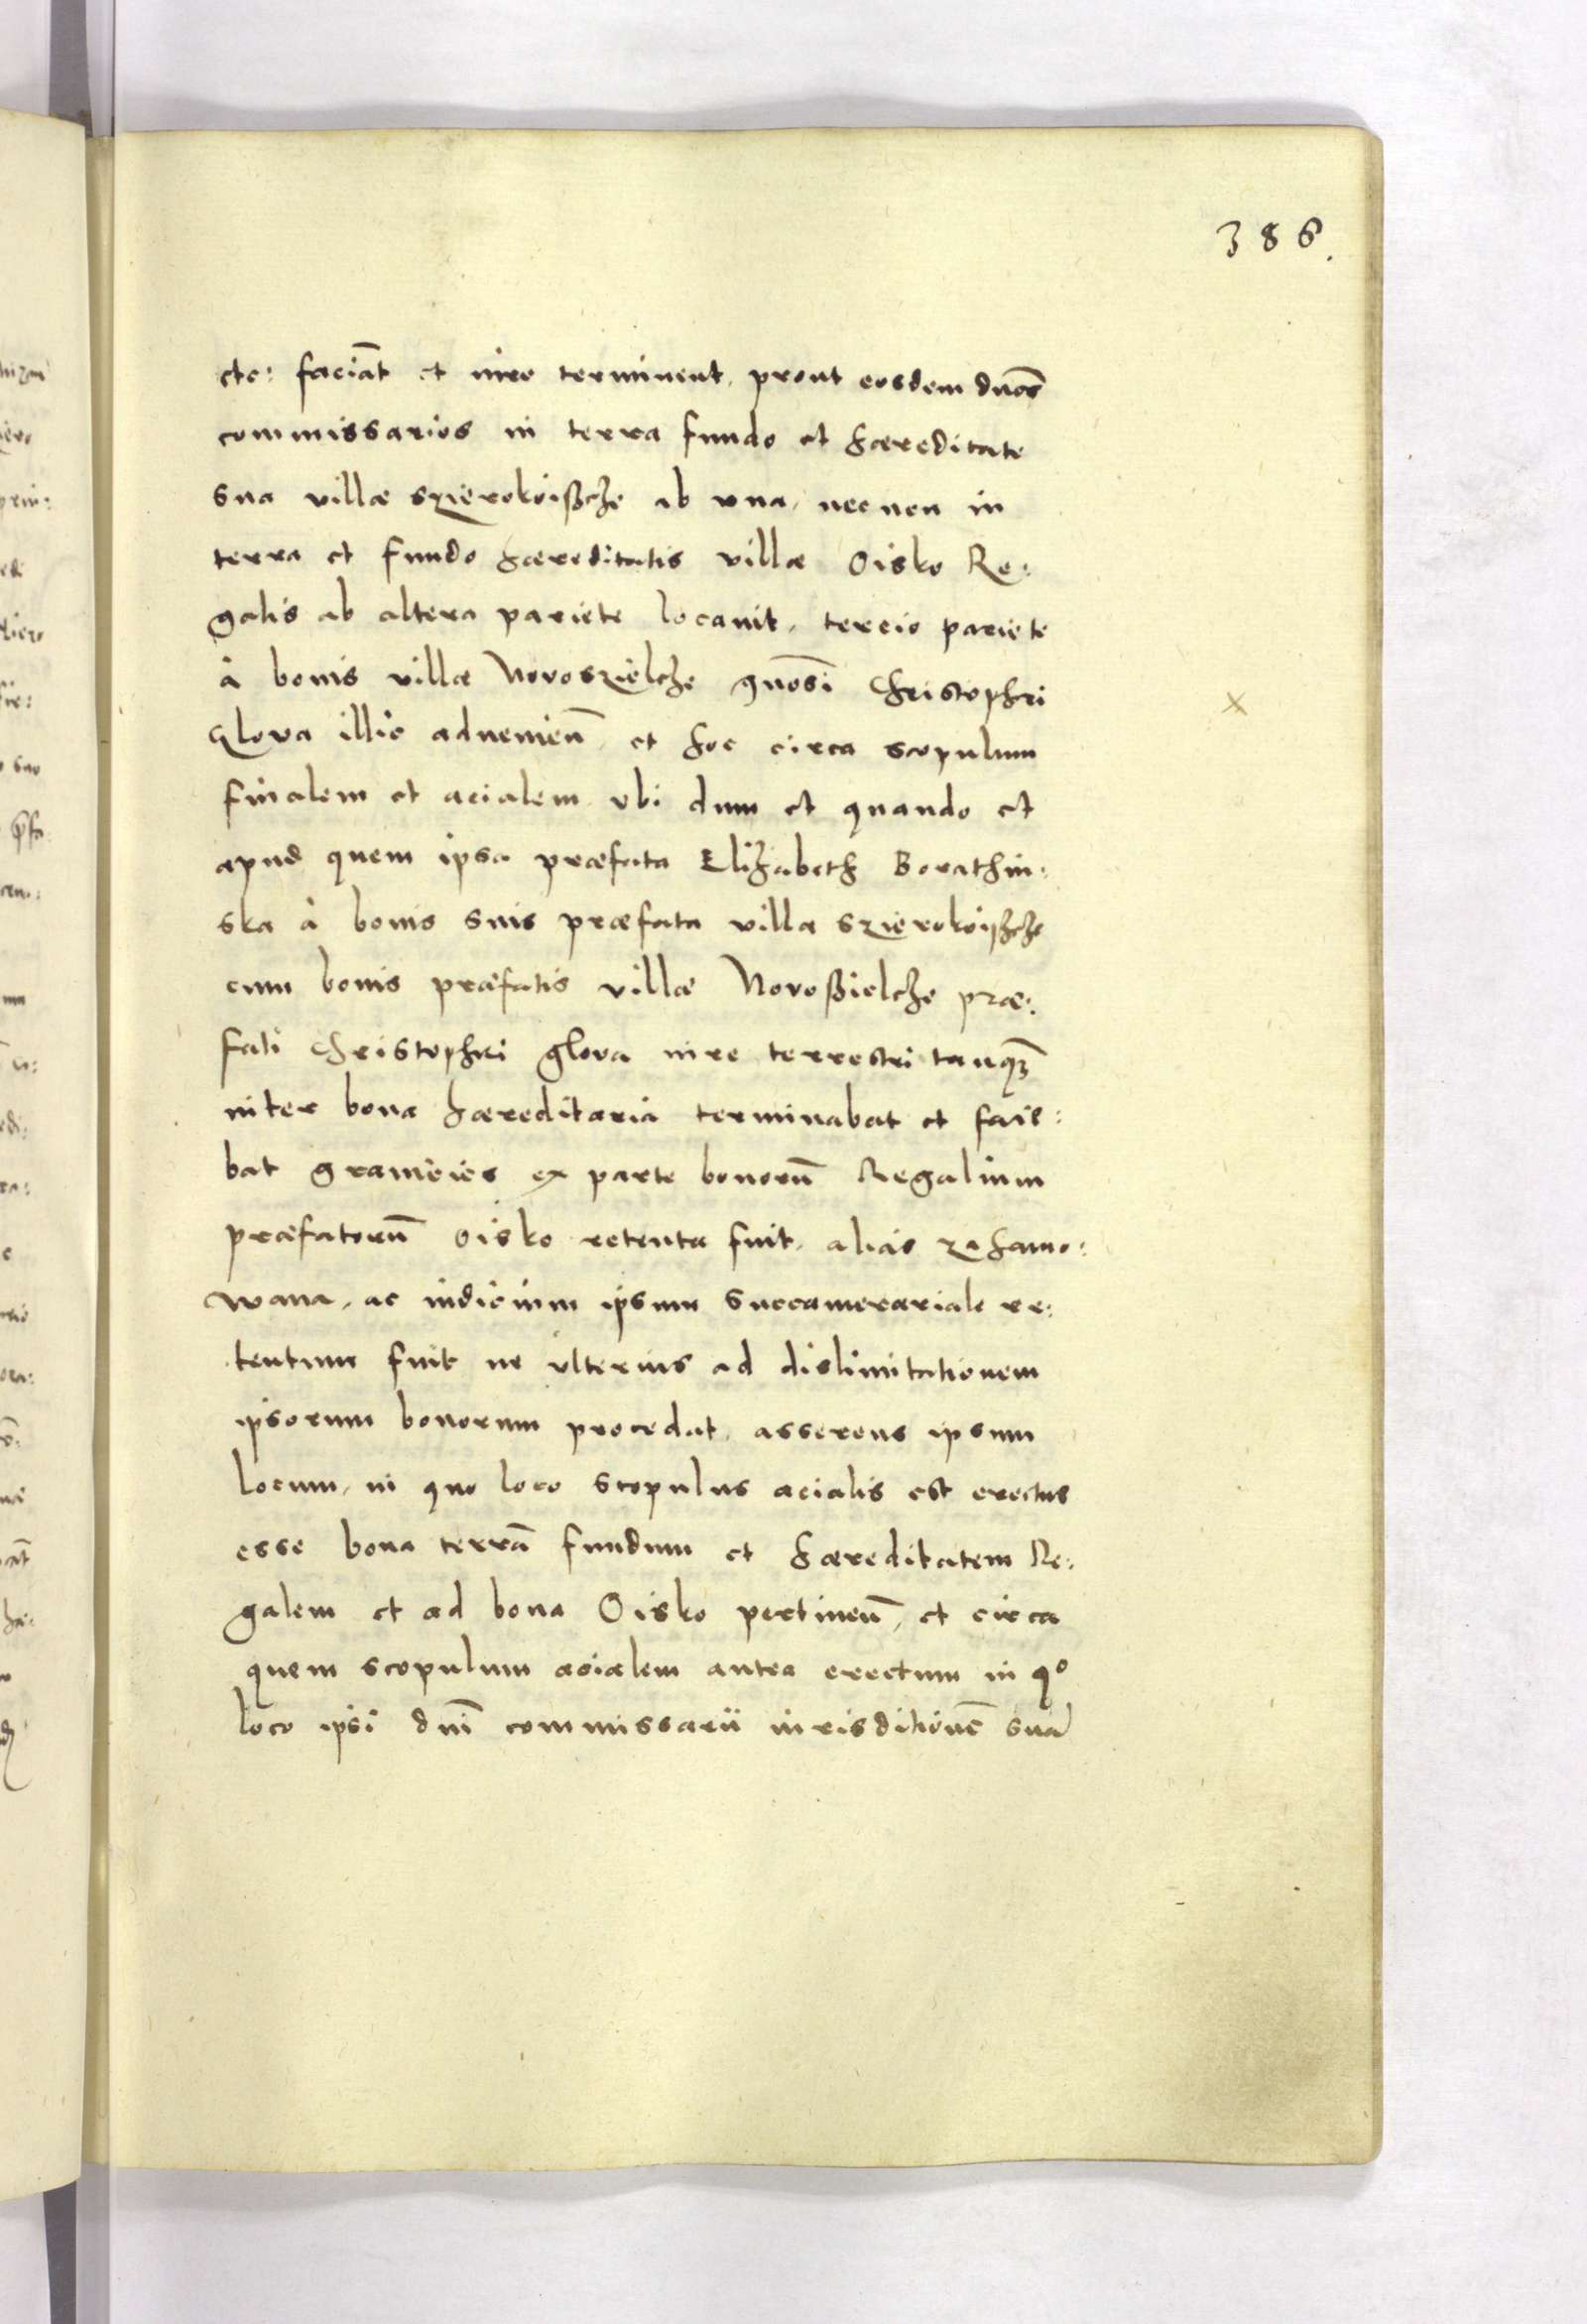 386.
etc: faciāt et iure terminent, prout eosdem dnōs
commissarios in terra fundo et hæreditate
sua villæ Szierokoißche ab vna, necnon in
terra et fundo hæreditatis villæ Oisko Re:
galis ab altera pariete locauit, tercio pariete
à bonis villæ Novoszielche gnōsi Christophri
Glova illic aduenien̄, et hoc circa scopulum
finalem et acialem vbi dum et quando et
apud quem ipsa præfata Elizabeth Borathin:
ska à bonis suis præfata villa Szierokoißche
cum bonis præfatis villæ Novoßielche præ:
fati Christophri Glova iure terrestri tanqꝫ
inter bona hæreditaria terminabat et facie:
bat granicies ex parte bonorū Regalium
præfatorū Oisko retenta fuit, alias zahamo:
wana, ac iudicium ipsum Succamerariale re:
tentum fuit ne vlterius ad dislimitationem
ipsorum bonorum procedat, asserens ipsum
locum, in quo loco scopulus acialis est erectus
esse bona terrā fundum et hæreditatem Re:
galem et ad bona Oisko pertinen̄, et circa
quem scopulum acialem antea erectum in qº
loco ipsi dnī commissarii iurisditionē suā